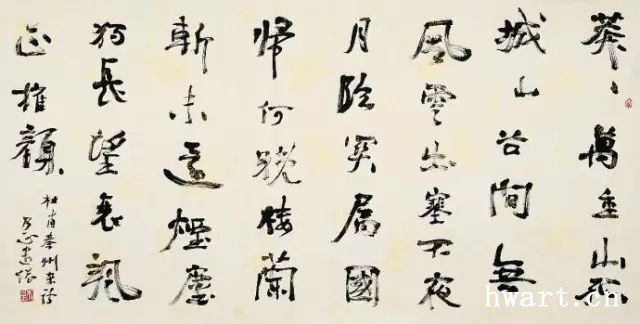 莽〻萬重山孤
城山谷間無
風雲出塞不夜
月臨関屬國
歸何晚樓蘭
斬未還煙塵
独長望衰颯
正摧顏
杜甫秦州杂诗
hwart.cn